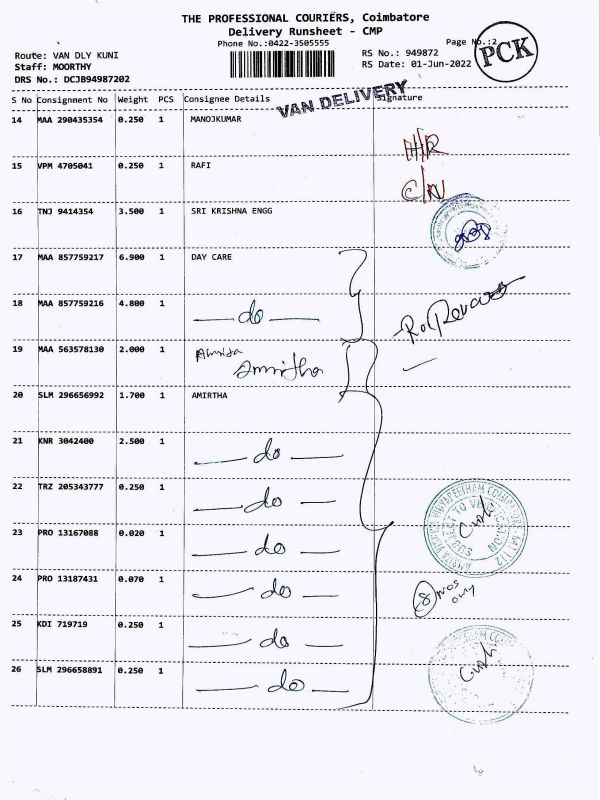 THE PROFESSIONAL COURIERS, Coimbatore
Delivery Runsheet - CMP
Phone No.:0422-3505555
Page No.:2
PCK
Route: VAN DLY KUNI
RS No.: 949872
Staff: MOORTHY
RS Date: 01-Jun-2022
DRS No.: DCJB94987202
VAN DELIVERY
S No Consignment No Weight PCS Consignee Details Signature
14 MAA 290435354 0.250 1 MANOJKUMAR
H/R
15 VPM 4705041 0.250 1 RAFI
C/N
16 TNJ 9414354 3.500 1 SRI KRISHNA ENGG
17 MAA 857759217 6.900 1 DAY CARE
18 MAA 857759216 4.800 1 — do —
19 MAA 563578130 2.000 1 Amirtha
20 SLM 296656992 1.700 1 AMIRTHA
21 KNR 3042400 2.500 1 — do —
22 TRZ 205343777 0.250 1 — do —
23 PRO 13167088 0.020 1 — do —
24 PRO 13187431 0.070 1 — do —
8 nos only
25 KDI 719719 0.250 1 — do —
26 SLM 296658891 0.250 1 — do —